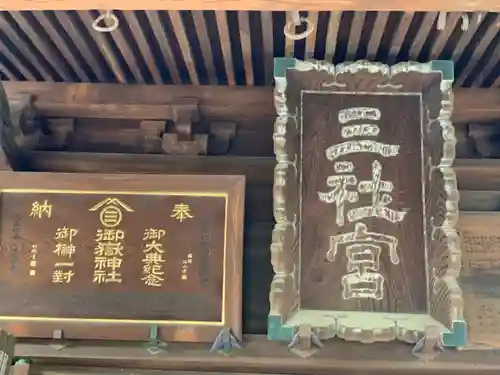 奉
納
御大典紀念
御嶽神社
御榊一對
三社宮